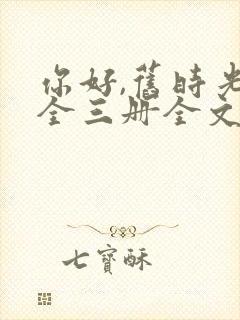 你好,舊時光
全三册全文
七寳酥